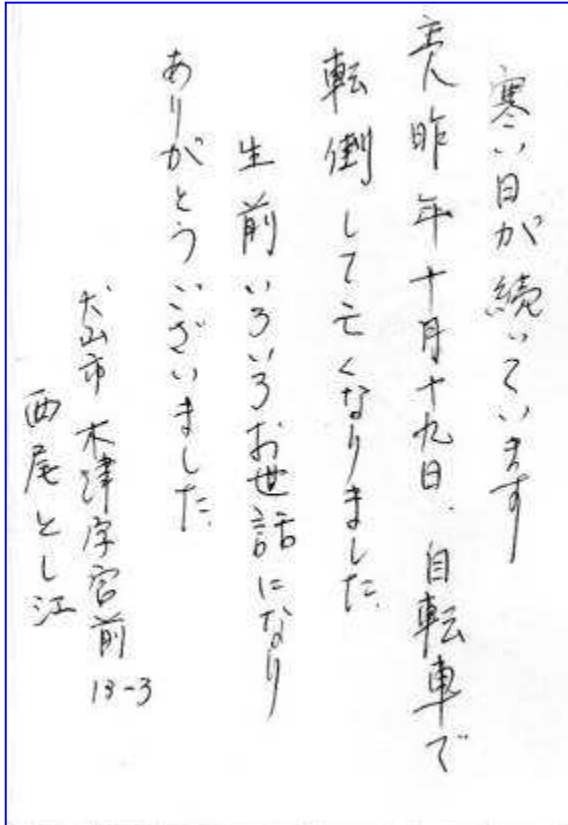 寒い日が続いています
主人昨年十月十九日、自転車で
転倒して亡くなりました。
生前いろいろお世話になり
ありがとうございました。
犬山市木津字宮前
13-3
西尾とし江